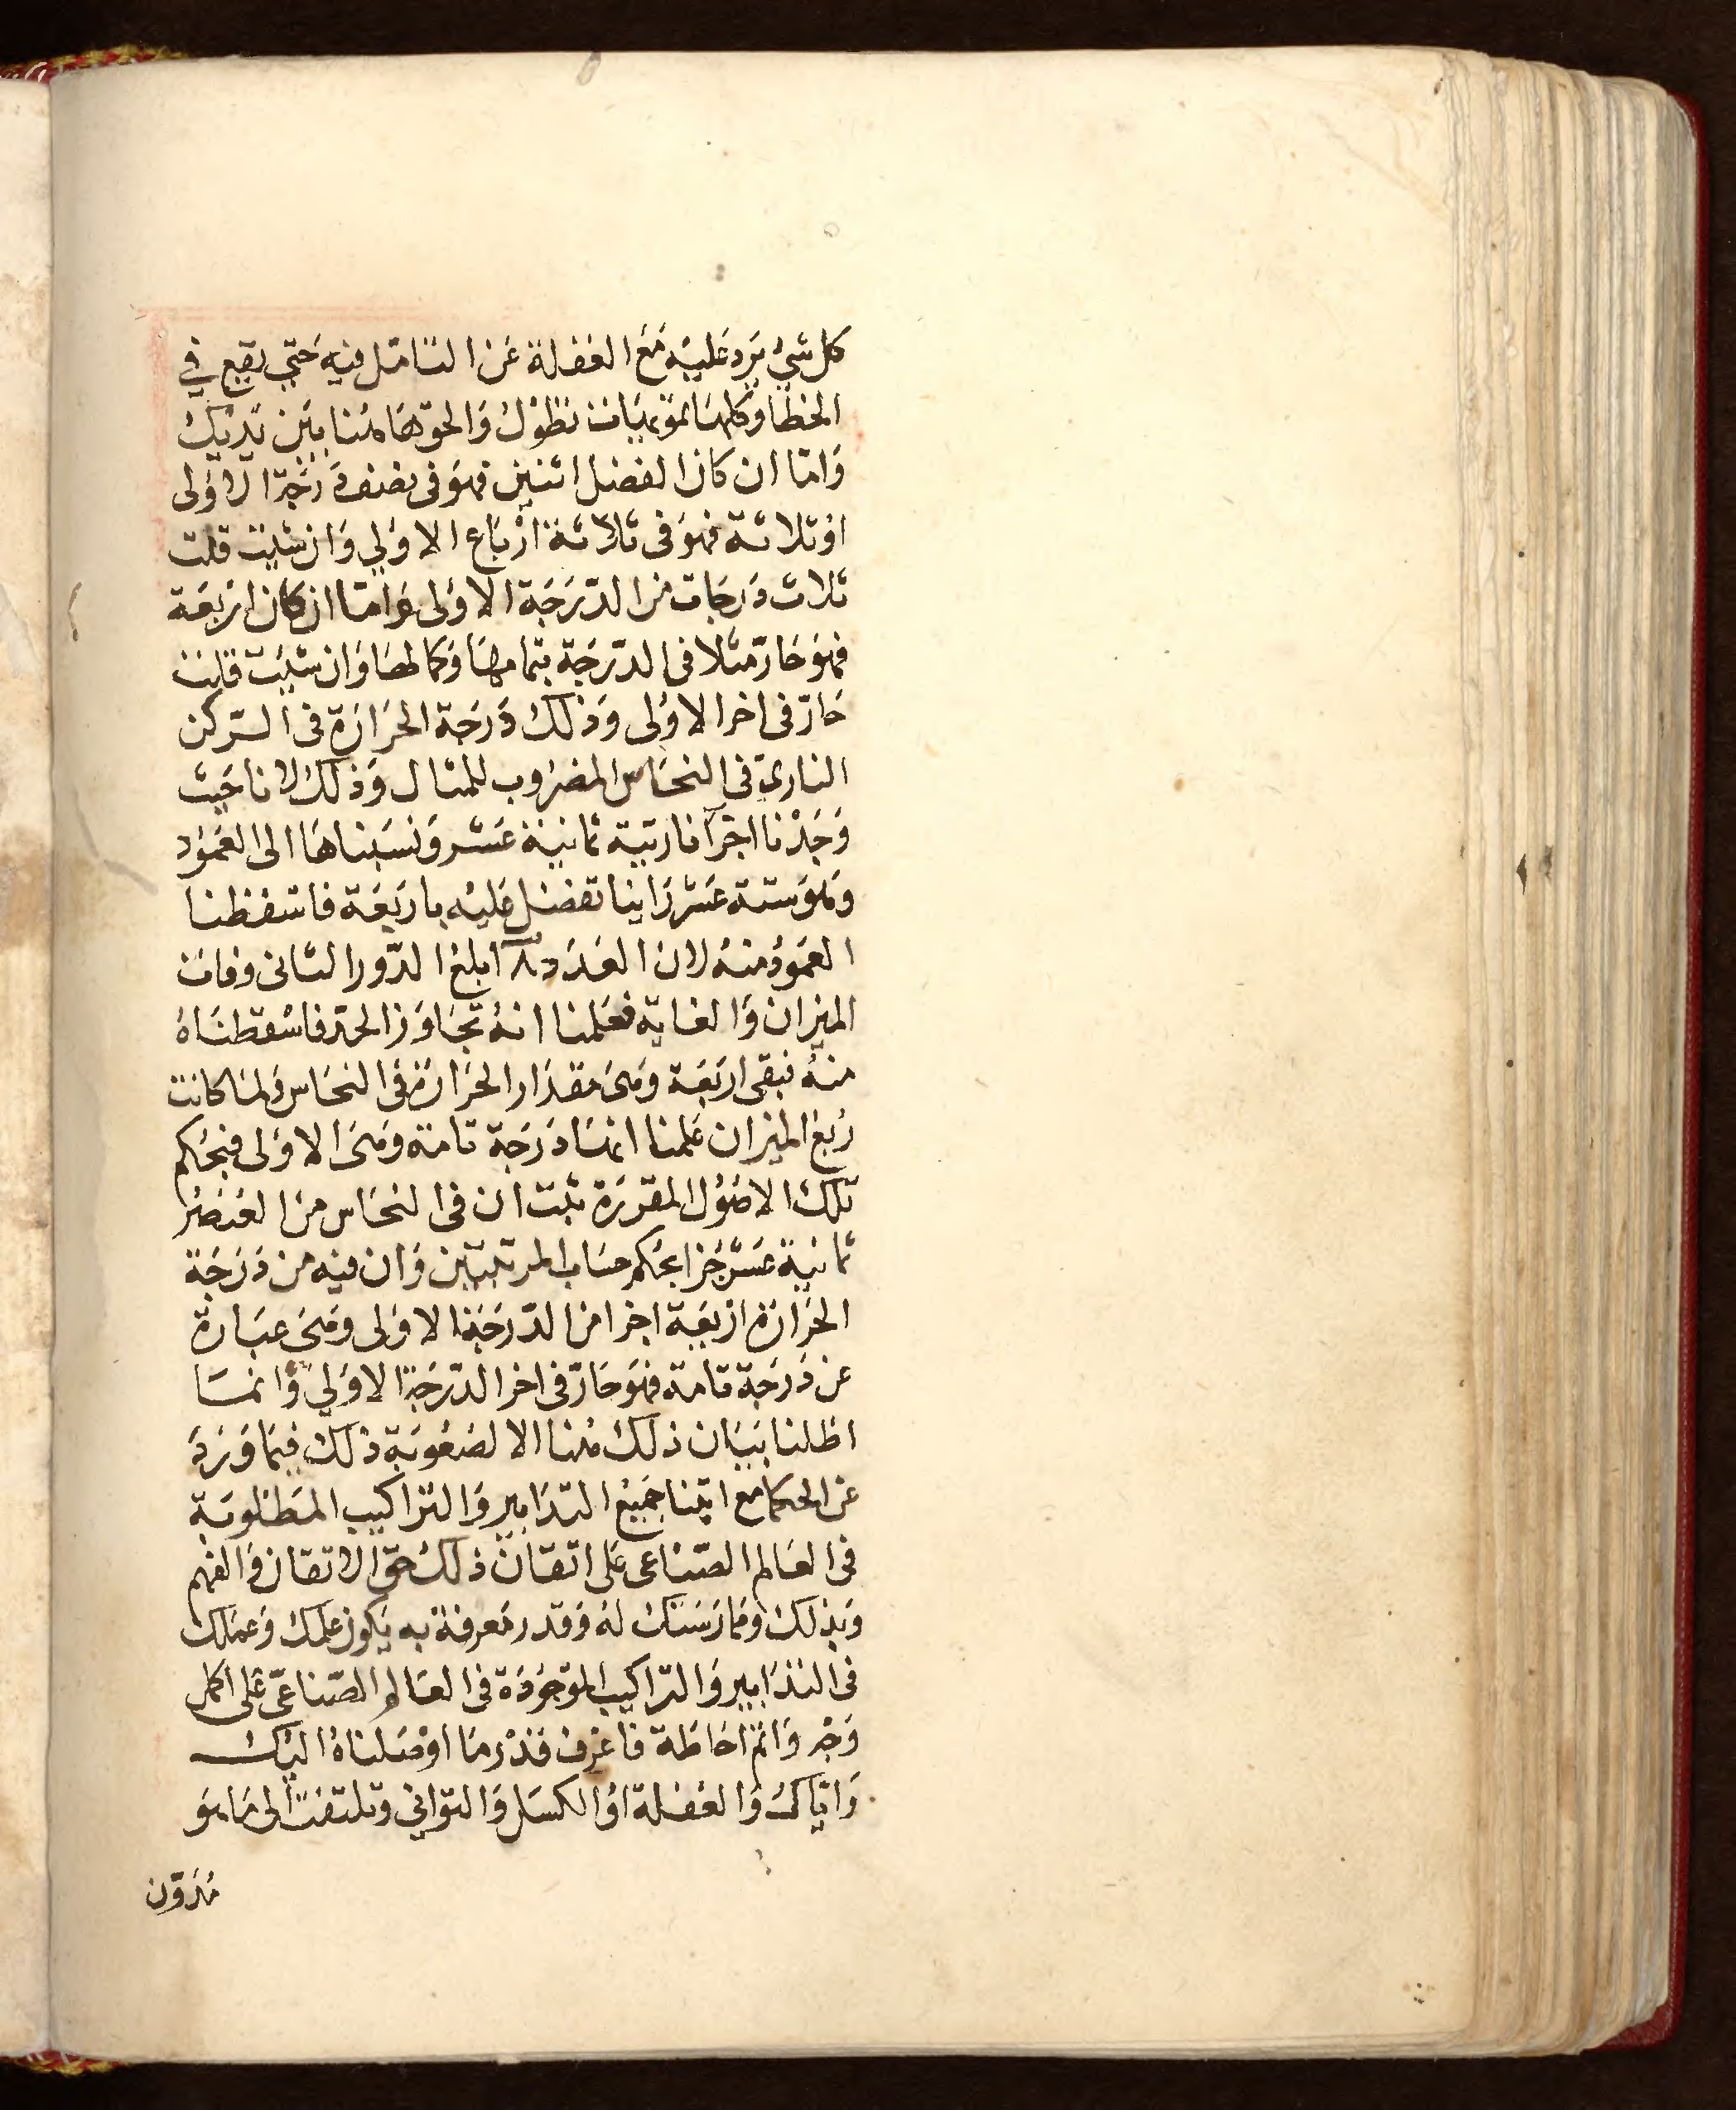 كل شيء يَرد عَليْه مَعَ الغفلة عَن التامّل فيه حَتي يقع في
الخطا وَكلهَا تمويَهات تطول وَالحق هَاهُنا بَين يَديْك
وَامّا ان كان الفضل اثنين فهوَ فى نصف دَرَجَة الاوُلى
اوْ ثلاثة فهوَ فى ثلاثة ارْبَاع الاوَلي وَان شيت قلت
ثلاث دَرجَات من الدّرَجَة الاوُلى وَامّا ان كان ارْبَعَة
فهوَ حَارّ مثلا فى الدّرَجَة بتمامهَا وَكمالهَا وَان شيت قلت
حَارّ فى اخر الاوُلى وَذلك دَرَجَة الحَرَارَة فى الرّكن
الناريّ فى النحَاس المضرُوب للمثال وَذلك لانا حَيث
وَجَدْنا اجزآ ناريّة ثمانيَة عَشر وَنسَبناهَا الى العَمُود
وَهوَ ستة عَشر رَاينا تفضل عَليْه باربَعَة فاسقطنا
العَمودُ منهُ لان العَدَد ١٨ بلغ الدّور الثانى وفات
الميزان وَالغاية فعَلمنا انهُ تجَاوَز الحَدّ فاسْقطنَاهُ
منهُ فبقى اربَعَة وَهىَ مقدَار الحَرَارَة فى النحَاس وَلما كانت
رُبعْ الميزان عَلمنا انهَا دَرَجَة تامة وَهىَ الاوَلى فبحُكم
تلك الاصُوُل المقررَة ثبت ان فى النحَاس منَ العُنصُر
ثمانيَة عَشر جُزا بحُكم حسَاب المرتبتين وَان فيه من دَرَجَة
الحَرَارَة ارْبَعَة اجزا من الدّرَجَة الاوَلى وَهىَ عبَارة
عن دَرَجَة تامة فهوَ حَارّ فى اخر الدّرَجَة الاوَلي وَانمَا
اطلنا ببَيَان ذلك هُنا الا لصَعُوبَة ذلك فيمَا وَرَدَ
عن الحكما مع ابتنا جَميْع التدَابير وَالتراكيب المَطلوبَة
فى العَالم الصّناعى عَلى اتقان ذلك حَق الاتقان وَالفهم
وَبذلك وَممارَسَتك لهُ وَقدر مَعرفة به يَكون عِلمك وَعمَلك
فى التدَابير وَالتراكيب الموَجوُدَة فى العَالم الصّناعىّ عَلى اكمَل
وَجْه وَاتمّ احَاطة فاعْرف قدْر مَا اوْصَلناهُ اليْك
وَايّاكَ وَالغفلة اوُ الكسَل وَالتوَانى وتلتفت الى مَا هوَ
مُدَوّن